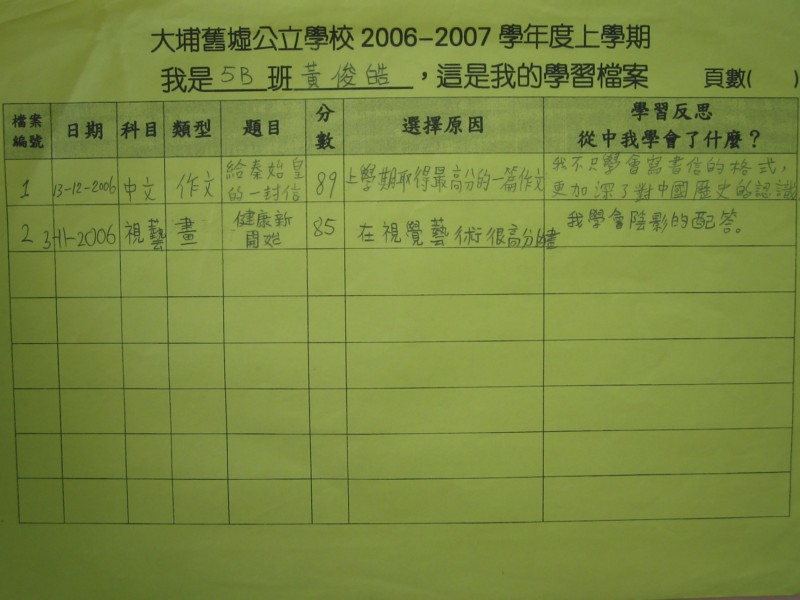 大埔舊墟公立學校 2006-2007 學年度上學期
我是 5B 班 黃俊皓 ,這是我的學習檔案 頁數( )
檔案編號 日期 科目 類型 題目 分數 選擇原因 學習反思 從中我學會了什麼?
1 13-12-2006 中文 作文 給秦始皇的一封信 89 上學期取得最高分的一篇作文 我不只學會寫書信的格式,更加深了對中國歷史的認識
2 3-11-2006 視藝 畫 健康新開始 85 在視覺藝術很高分 我學會陰影的配答。